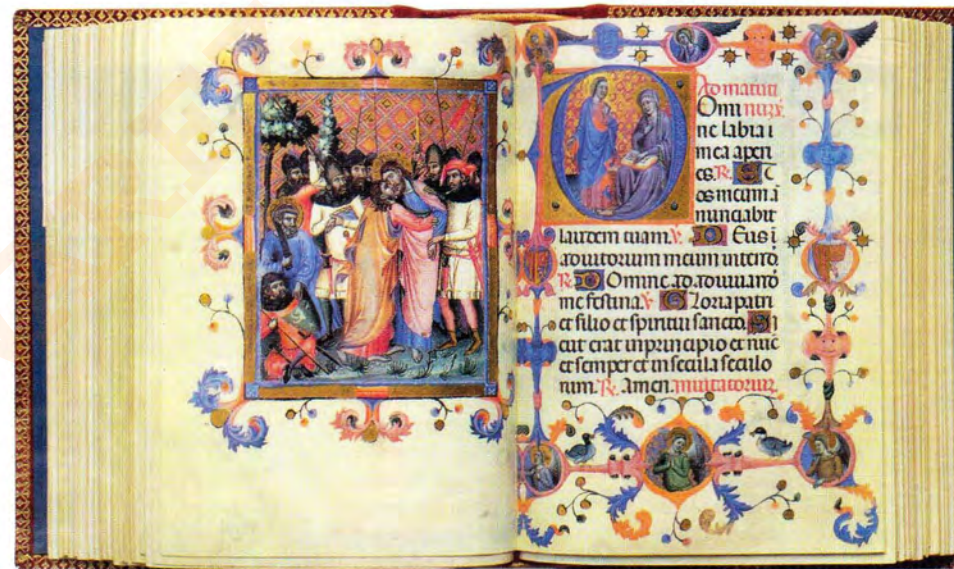 Ad matuti
Omi nuʒ.
ne labia i
mea aperi
es. ℟. Et
os meum a
nunciabit
laudem tuam. ℣. Deus i
adiutorium meum intend.
℟. Domine ad adiuuand
me festina. ℣. Gloria patri
et filio et spiritui sancto. Si
cut erat in principio et nūc
et semper et in secula seculo
rum. ℟. Amen. inuitatorium